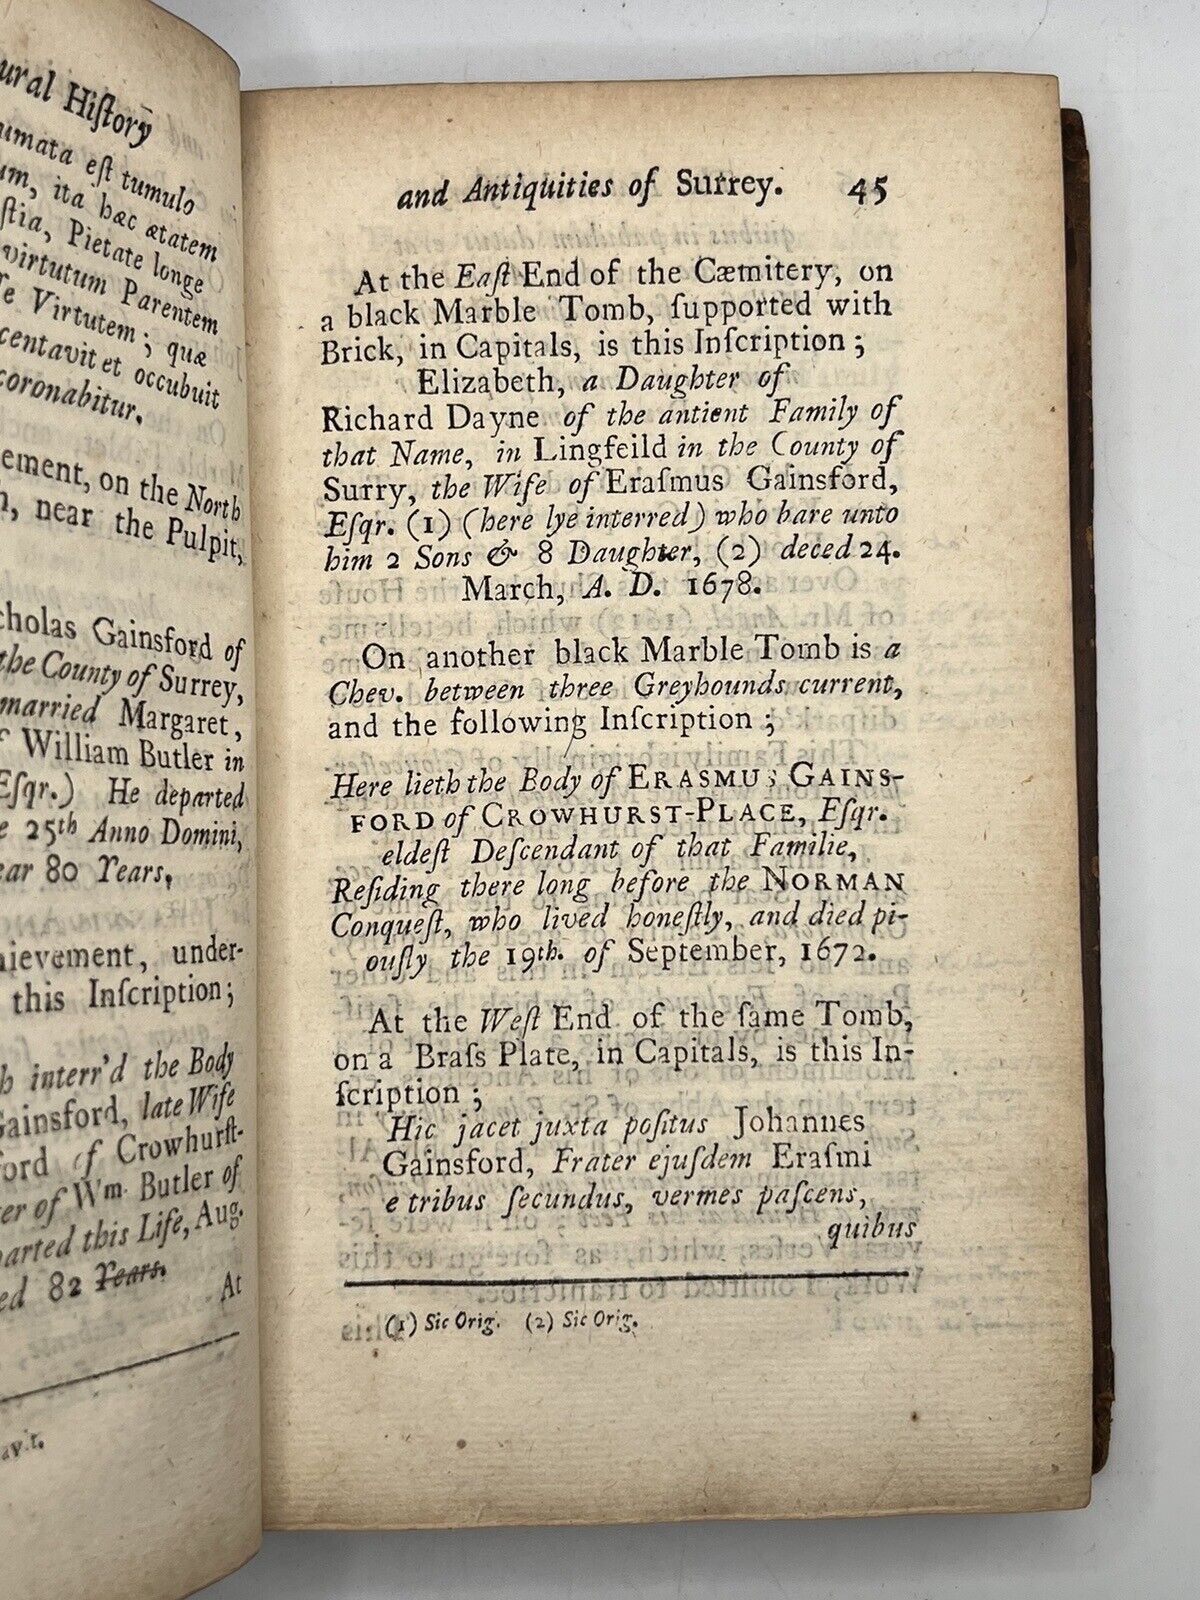 ural Hiſtory
umata eſt tumulo
um, ita hæc ætatem
ſtia, Pietate longe
virtutum Parentem
Virtutem; quæ
centavit et occubuit
coronabitur.
ement, on the North
near the Pulpit,
cholas Gainsford of
the County of Surrey,
married Margaret,
William Butler in
Eſqr.) He departed
25th Anno Domini,
ear 80 Years,
hievement, under-
this Inſcription;
h interr'd the Body
Gainsford, late Wife
ford of Crowhurſt-
er of Wm. Butler of
parted this Life, Aug.
ed 82 Years.
At
and Antiquities of Surrey. 45
At the Eaſt End of the Cæmitery, on
a black Marble Tomb, ſupported with
Brick, in Capitals, is this Inſcription;
Elizabeth, a Daughter of
Richard Dayne of the antient Family of
that Name, in Lingfeild in the County of
Surry, the Wife of Eraſmus Gainsford,
Eſqr. (1) (here lye interred) who bare unto
him 2 Sons & 8 Daughter, (2) deced 24.
March, A. D. 1678.
On another black Marble Tomb is a
Chev. between three Greyhounds current,
and the following Inſcription;
Here lieth the Body of ERASMUS GAINS-
FORD of CROWHURST-PLACE, Eſqr.
eldeſt Deſcendant of that Familie,
Reſiding there long before the NORMAN
Conqueſt, who lived honeſtly, and died pi-
ouſly the 19th. of September, 1672.
At the Weſt End of the ſame Tomb,
on a Braſs Plate, in Capitals, is this In-
ſcription;
Hic jacet juxta poſitus Johannes
Gainsford, Frater ejuſdem Eraſmi
e tribus ſecundus, vermes paſcens,
quibus
(1) Sic Orig. (2) Sic Orig.